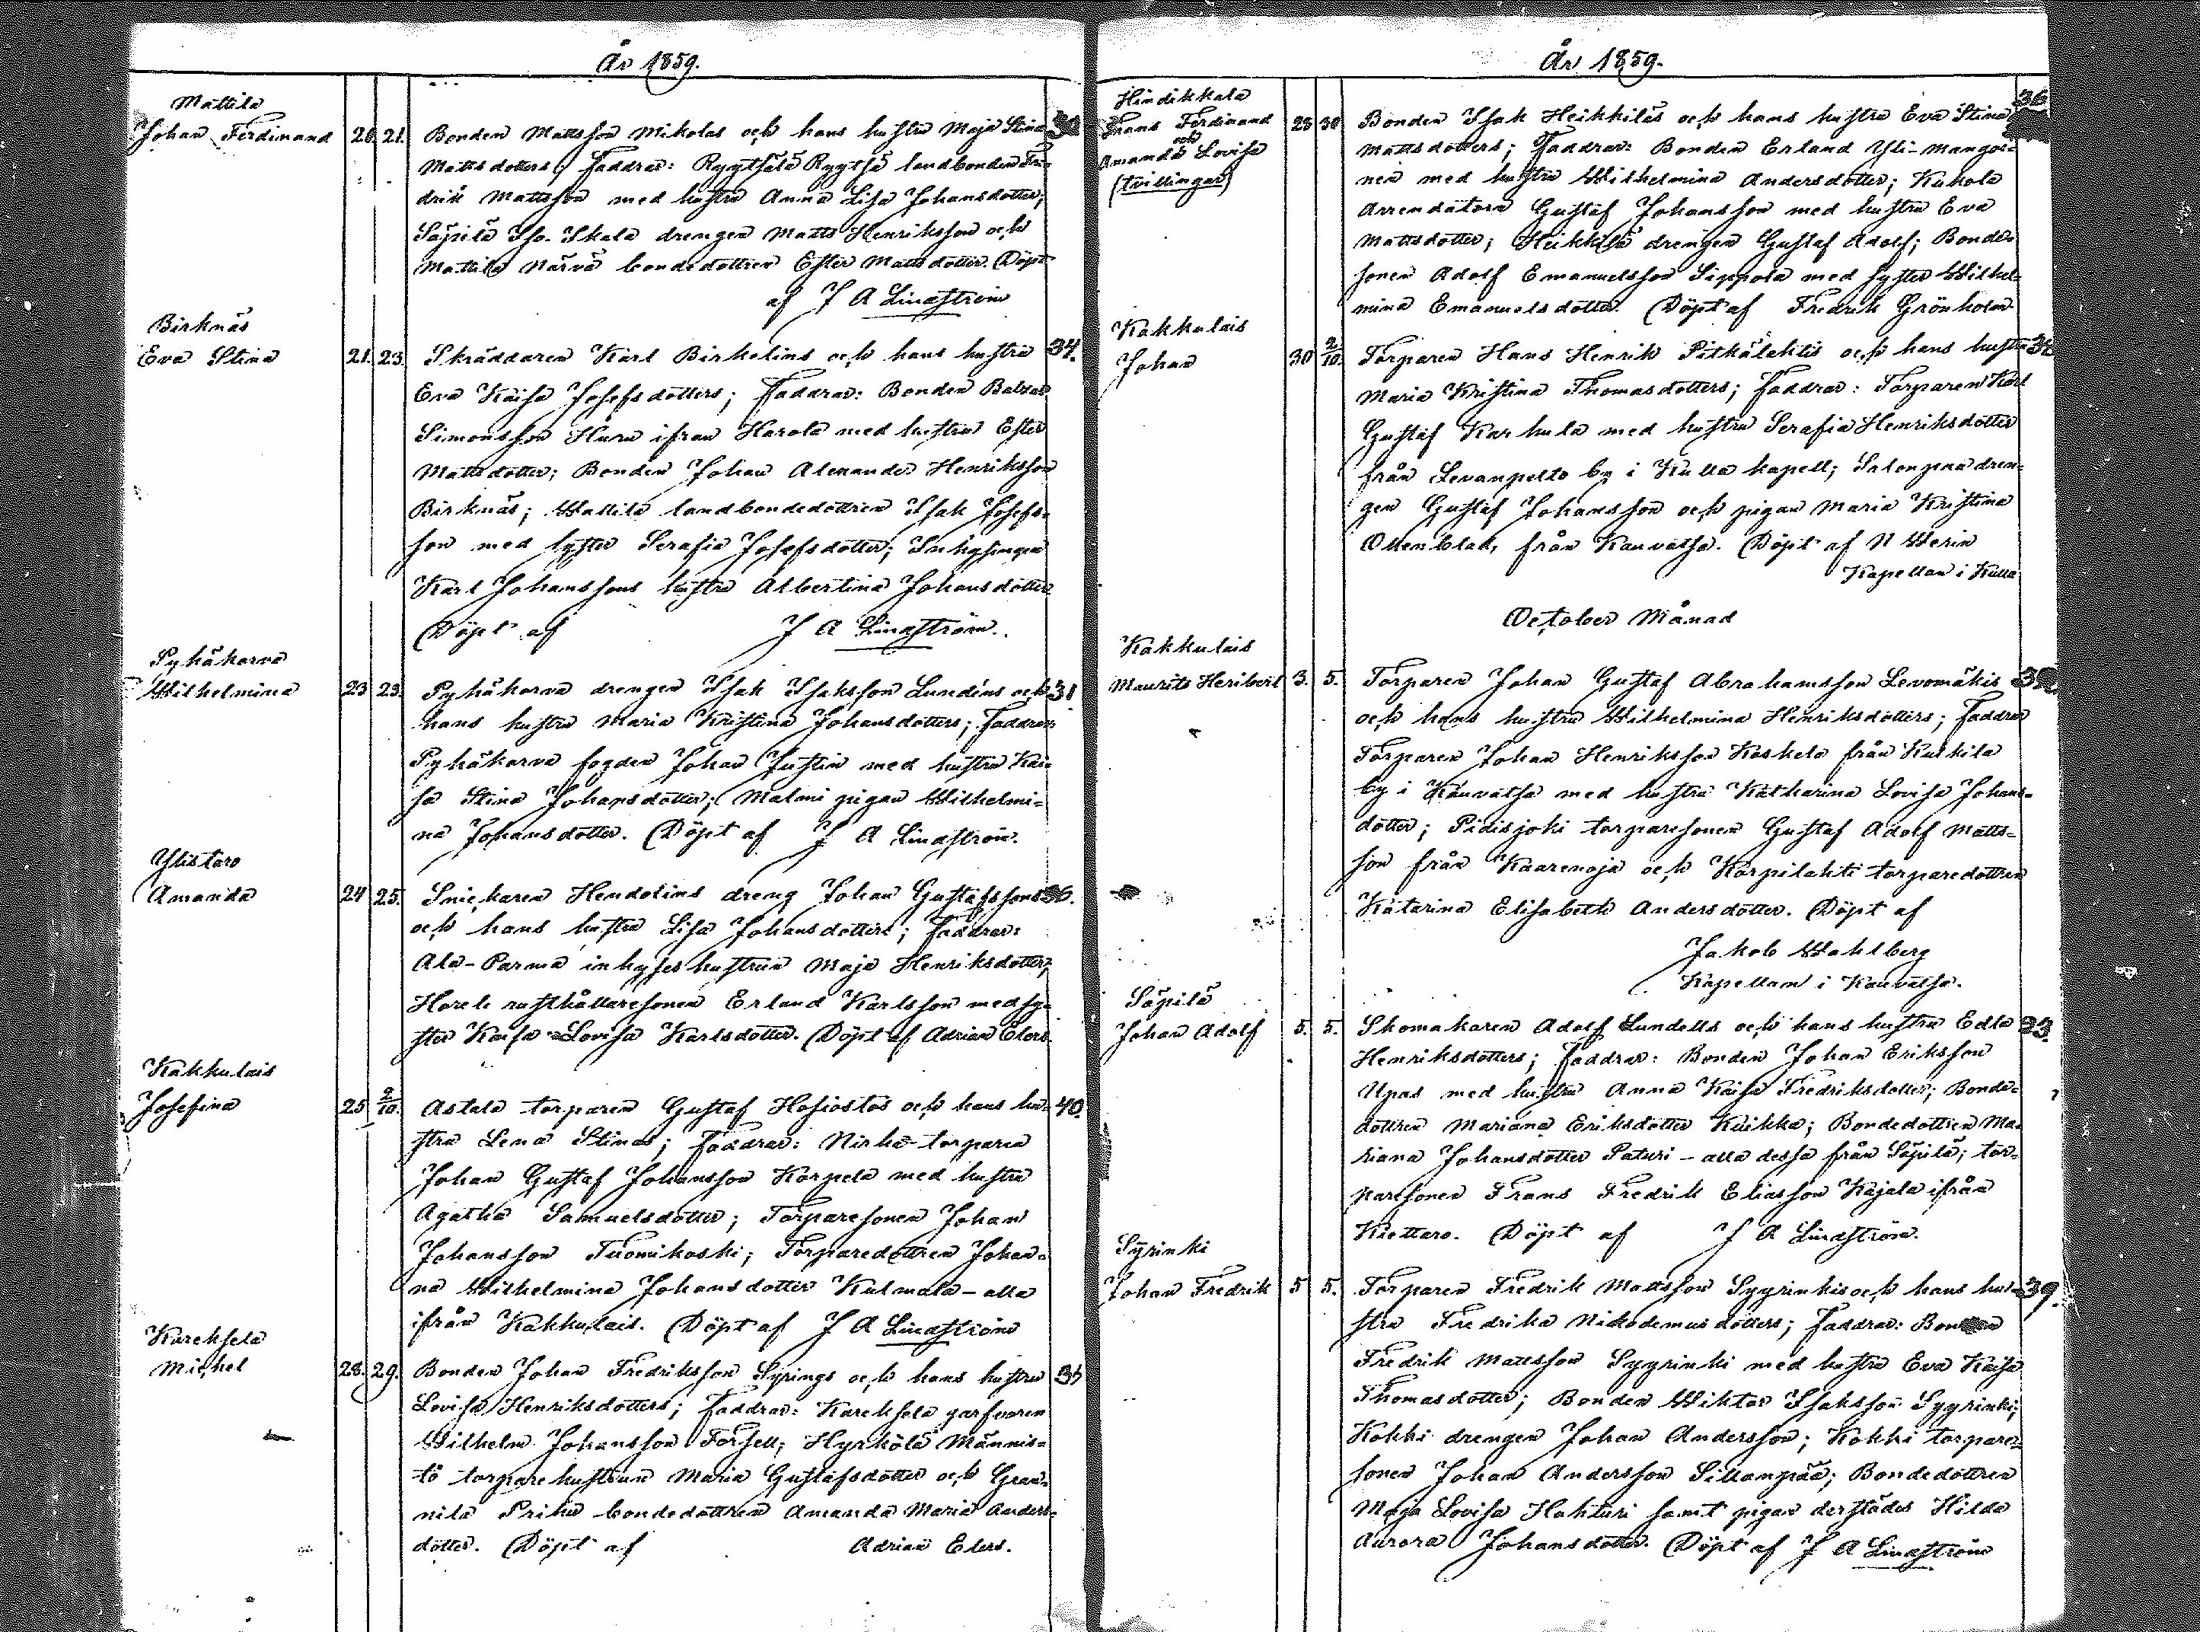 År 1859.
Mattila
Johan Ferdinand 20. 21. Bonden Mattsson Mikolas och hans hustru Maja Stina
Mattsdotters; faddrar: Ryytsälä Ryytsä landbonden Fre-
drik Mattsson med hustru Anna Lisa Johansdotter;
Säpilä Iso-Skala drengen Matts Henriksson och
Mattila Närvä bondedottren Ester Mattsdotter. Döpt
af J A Lindström
Birknäs
Eva Stina 21. 23. Skräddaren Karl Birkelins och hans hustru 34.
Eva Kaisa Josefsdotters; faddrar: Bonden Baltzar
Simonsson Huru ifrån Harola med hustru Ester
Mattsdotter; Bonden Johan Alexander Henriksson
Birknäs; Wallila landbondedottren Isak Josefs-
son med syster Serafia Josefsdotter; Inhysingen
Karl Johanssons hustru Albertina Johansdotter
Döpt af J A Lindström.
Pyhäkorva
Wilhelmina 23 23. Pyhäkorva drengen Isak Isaksson Lundéns och 31
hans hustru Maria Kristina Johansdotters; faddrar:
Pyhäkorva fogden Johan Justin med hustru Kai-
sa Stina Johansdotter; Malmi pigan Wilhelmi-
na Johansdotter. Döpt af J A Lindström.
Ylistaro
Amanda 24 25. Snickaren Hendolins dreng Johan Gustafssons 36.
och hans hustru Lisa Johansdotters; faddrar:
Ala-Parma inhyseshustrun Maja Henriksdotter;
Horeli rusthållaresonen Erland Karlsson med sy-
ster Kaisa Lovisa Karlsdotter. Döpt af Adrian Elers.
Kakkulais
Josefina 25 2/10. Astala torparen Gustaf Hosiostos och hans hu- 40
stru Lena Stinas; faddrar: Nirko torparen
Johan Gustaf Johansson Korpela med hustru
Agatha Samuelsdotter; Torparesonen Johan
Johansson Tuomikoski; Torparedottren Johan-
na Wilhelmina Johansdotter Kulmala – alla
ifrån Kakkulais. Döpt af J A Lindström
Kareksela
Michel 28. 29. Bonden Johan Fredriksson Syrings och hans hustru
Lovisa Henriksdotters; faddrar: Kareksela garfvaren
Wilhelm Johansson Forsell; Hyrkölä Männis-
tö torparehustrun Maria Gustafsdotter och Gran-
nila Priku bondedottren Amanda Maria Anders-
dotter. Döpt af Adrian Elers.
År 1859.
Hindikkala
Frans Ferdinand 28 30 Bonden Isak Heikkiläs och hans hustru Eva Stina 36
och
Amanda Lovisa Mattsdotters; Faddrar: Bonden Erland Yli-Mangoi-
(tvillingar) nen med hustru Wilhelmina Andersdotter; Kukola
Arrendatorn Gustaf Johansson med hustru Eva
Mattsdotter; Heikkilä drengen Gustaf Adolf; Bonde-
sonen Adolf Emanuelsson Sippola med syster Wilhel-
mina Emanuelsdotter. Döpt af Fredrik Grönholm
Kakkulais
Johan 30 2/10. Torparen Hans Henrik Pitkälahtis och hans hustru
Maria Kristina Thomasdotters; faddrar: Torparen Karl
Gustaf Karhula med hustru Serafia Henriksdotter
från Levanpelto by i Kulla kapell; Salonpää dren-
gen Gustaf Johansson och pigan Maria Kristina
Ottenblad, från Kauvatsa. Döpt af N Werin
Kapellan i Kulla
October Månad
Kakkulais
Maurits Heribert 3. 5. Torparen Johan Gustaf Abrahamsson Levomäkis
och hans hustru Wilhelmina Henriksdotters; faddrar
Torparen Johan Henriksson Koskelo från Kulkila
by i Kauvatsa med hustru Katharina Lovisa Johans-
dotter; Pidisjoki torparesonen Gustaf Adolf Matts-
son från Kaarenoja och Korpilahti torparedottren
Katarina Elisabeth Andersdotter. Döpt af
Jakob Wahlberg
Kapellan i Kauvatsa.
Säpilä
Johan Adolf 5. 5. Skomakaren Adolf Lundells och hans hustru Edla 23.
Henriksdotters; faddrar: Bonden Johan Eriksson
Upas med hustru Anna Kaisa Fredriksdotter; Bonde-
dottren Mariana Eriksdotter Kuikka; Bondedottren Ma-
riana Johansdotter Paturi – alla dessa från Säpilä; tor-
paresonen Frans Fredrik Eliasson Kajala ifrån
Kiettare. Döpt af J A Lindström.
Syrinki
Johan Fredrik 5 5. Torparen Fredrik Mattsson Syyrinkis och hans hu- 39.
stru Fredrika Nikodemusdotters; faddrar: Bonden
Fredrik Mattsson Syyrinki med hustru Eva Kaisa
Thomasdotter; Bonden Wiktor Isaksson Syyrinki;
Kokki drengen Johan Andersson; Kokki torpare-
sonen Johan Andersson Sillanpää; Bondedottren
Maja Lovisa Hohturi samt pigan derstädes Hilda
Aurora Johansdotter. Döpt af J A Lindström